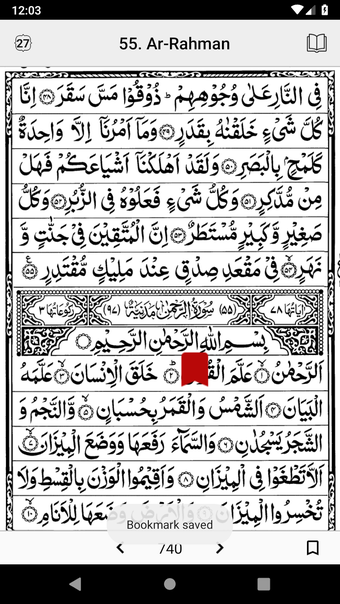 12:03
27
55. Ar-Rahman
فِى النَّارِ عَلٰى وُجُوْهِهِمْ ؕ ذُوْقُوْا مَسَّ سَقَرَ ﴿۴۸﴾ اِنَّا
كُلَّ شَىْءٍ خَلَقْنٰهُ بِقَدَرٍ ﴿۴۹﴾ وَمَاۤ اَمْرُنَاۤ اِلَّا وَاحِدَةٌ
كَلَمْحٍۭ بِالْبَصَرِ ﴿۵۰﴾ وَلَقَدْ اَهْلَكْنَاۤ اَشْيَاعَكُمْ فَهَلْ
مِنْ مُّدَّكِرٍ ﴿۵۱﴾ وَكُلُّ شَىْءٍ فَعَلُوْهُ فِى الزُّبُرِ ﴿۵۲﴾ وَكُلُّ
صَغِيْرٍ وَّكَبِيْرٍ مُّسْتَطَرٌ ﴿۵۳﴾ اِنَّ الْمُتَّقِيْنَ فِىْ جَنّٰتٍ وَّ
نَهَرٍ ﴿۵۴﴾ فِىْ مَقْعَدِ صِدْقٍ عِنْدَ مَلِيْكٍ مُّقْتَدِرٍ ﴿۵۵﴾
اٰيَاتُهَا ۷۸ (۵۵) سُوْرَةُ الرَّحْمٰنِ مَدَنِيَّةٌ (۹۷) رُكُوْعَاتُهَا ۳
بِسْمِ اللّٰهِ الرَّحْمٰنِ الرَّحِيْمِ
اَلرَّحْمٰنُ ﴿۱﴾ عَلَّمَ ﴿۲﴾ خَلَقَ الْاِنْسَانَ ﴿۳﴾ عَلَّمَهُ
الْبَيَانَ ﴿۴﴾ اَلشَّمْسُ وَالْقَمَرُ بِحُسْبَانٍ ﴿۵﴾ وَّالنَّجْمُ وَ
الشَّجَرُ يَسْجُدٰنِ ﴿۶﴾ وَالسَّمَآءَ رَفَعَهَا وَوَضَعَ الْمِيْزَانَ ﴿۷﴾
اَلَّا تَطْغَوْا فِى الْمِيْزَانِ ﴿۸﴾ وَاَقِيْمُوا الْوَزْنَ بِالْقِسْطِ وَلَا
تُخْسِرُوا الْمِيْزَانَ وَضَعَهَا لِلْاَنَامِ ﴿۱۰﴾
Bookmark saved
740